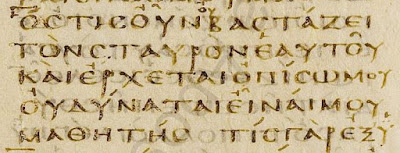 ΟϹΤΙϹΟΥΝΒΑϹΤΑΖΕΙ
ΤΟΝϹΤΑΥΡΟΝΕΑΥΤΟΥ
ΚΑΙΕΡΧΕΤΑΙΟΠΙϹΩΜΟΥ
ΟΥΔΥΝΑΤΑΙΕΙΝΑΙΜΟΥ
ΜΑΘΗΤΗϹ ΤΙϹΓΑΡΕΞΥ